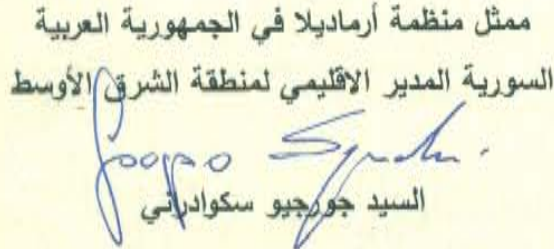 ممثل منظمة أرماديلا في الجمهورية العربية
السورية المدير الاقليمي لمنطقة الشرق الأوسط
السيد جورجيو سكوادراني